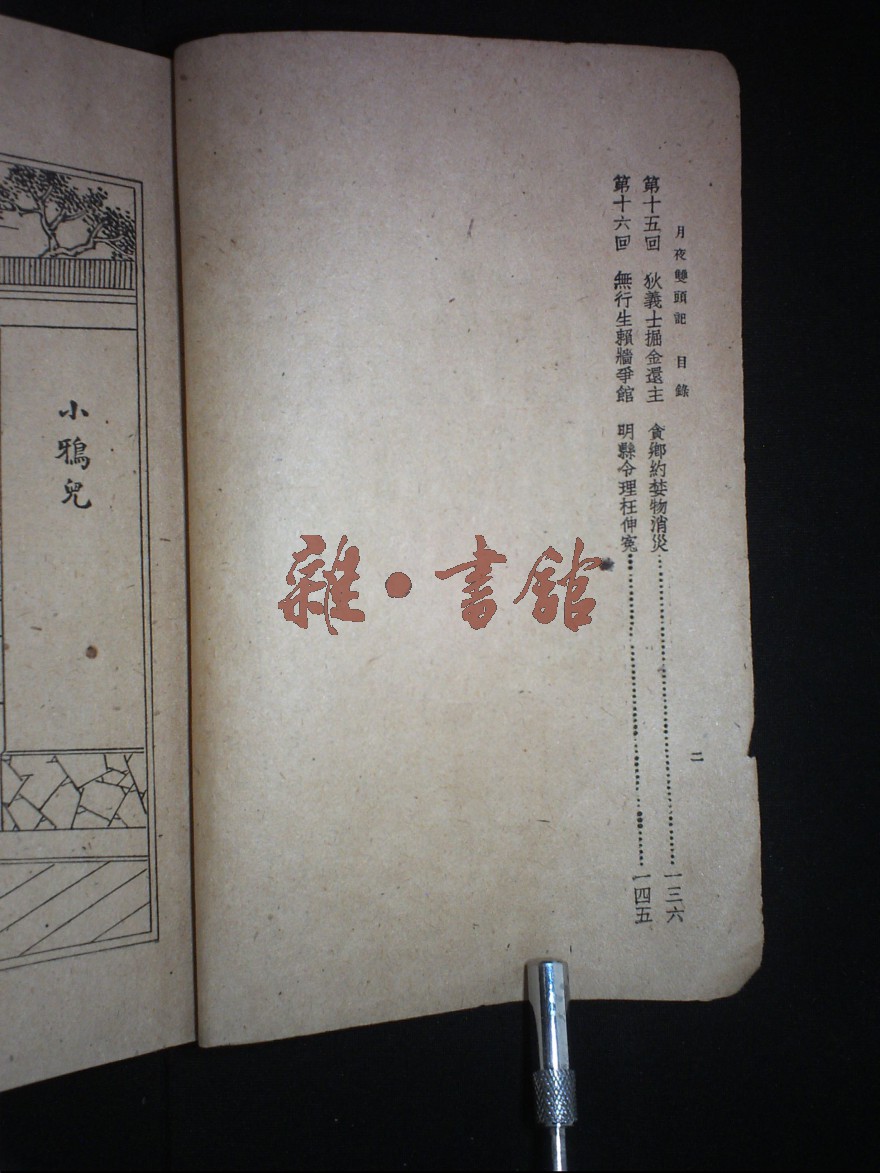 月夜雙頭記 目錄
二
第十五回 狄義士掘金還主 貪鄉約婪物消災 一三六
第十六回 無行生賴牆爭館 明縣令理枉伸寃 一四五
雜·書館
小鴉兒